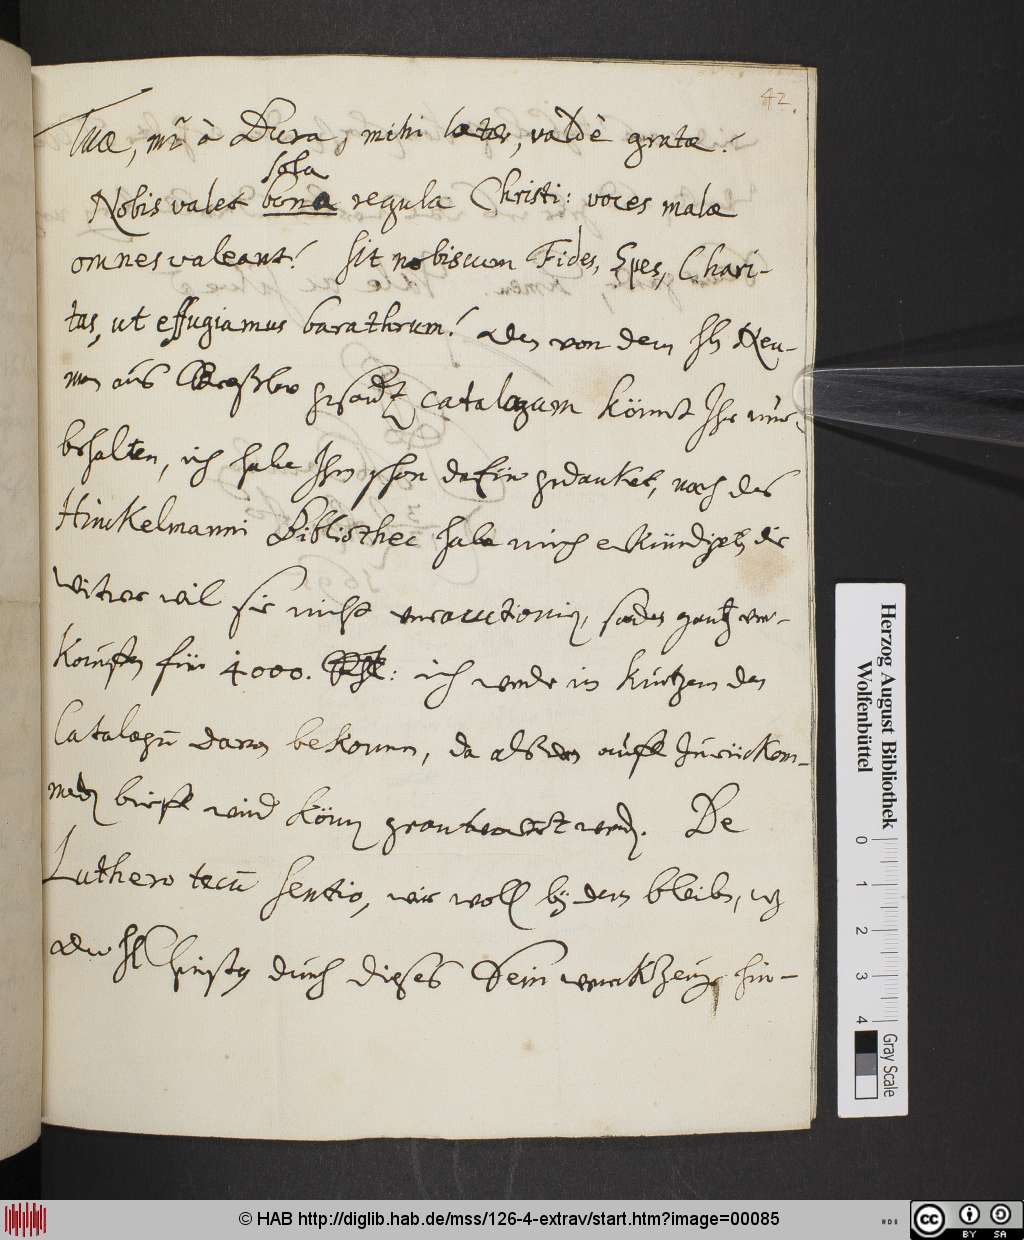 42.
Tuæ, mr̃ à Dura, mihi lætæ, valdè gratæ.
sola
Nobis valet bona regula Christi: voces malæ
omnes valeant! sit nobiscum Fides, Spes, Chari-
tas, ut effugiamus barathrum! Den von dem H Neu-
man aus Breßlow gesandt catalogum könnt Ihr nur
behalten, ich habe Ihm schon dafür gedanket, nach des
Hinckelmanni Bibliothec habe mich erkündigt, die
witwe wil sie nicht verauctionirn, sondern gantz ver-
kauffen für 4000. Rthl: ich werde in kurtzem den
Catalogū davon bekommen, da alßden auffs Zurückom-
mende brieffe wird können geantwortet werden. De
Luthero tecū sentio, wir wollen bey dem bleiben, wz
der H Christus durch dieses Sein werckzeug hin-
Herzog August Bibliothek
Wolfenbüttel
0 1 2 3 4
Gray Scale
© HAB http://diglib.hab.de/mss/126-4-extrav/start.htm?image=00085
cc BY SA